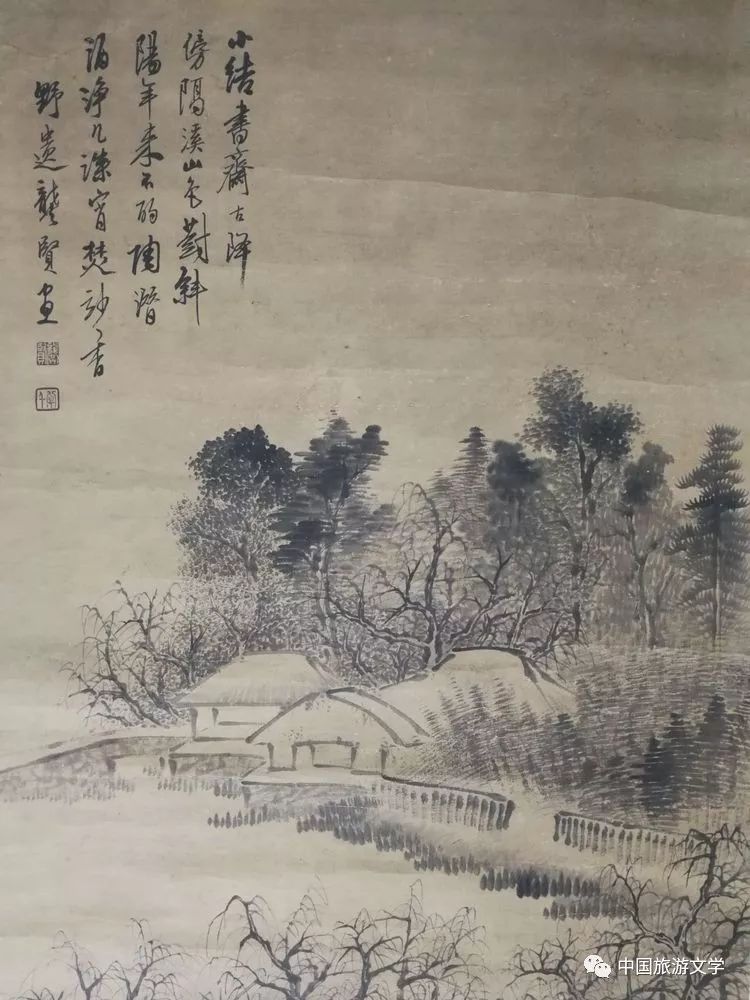 小結書齋古
傍隔溪山色對斜
陽年來不酌陶潛
酒淨几焚妙香
野遺龔賢畫
中国旅游文学